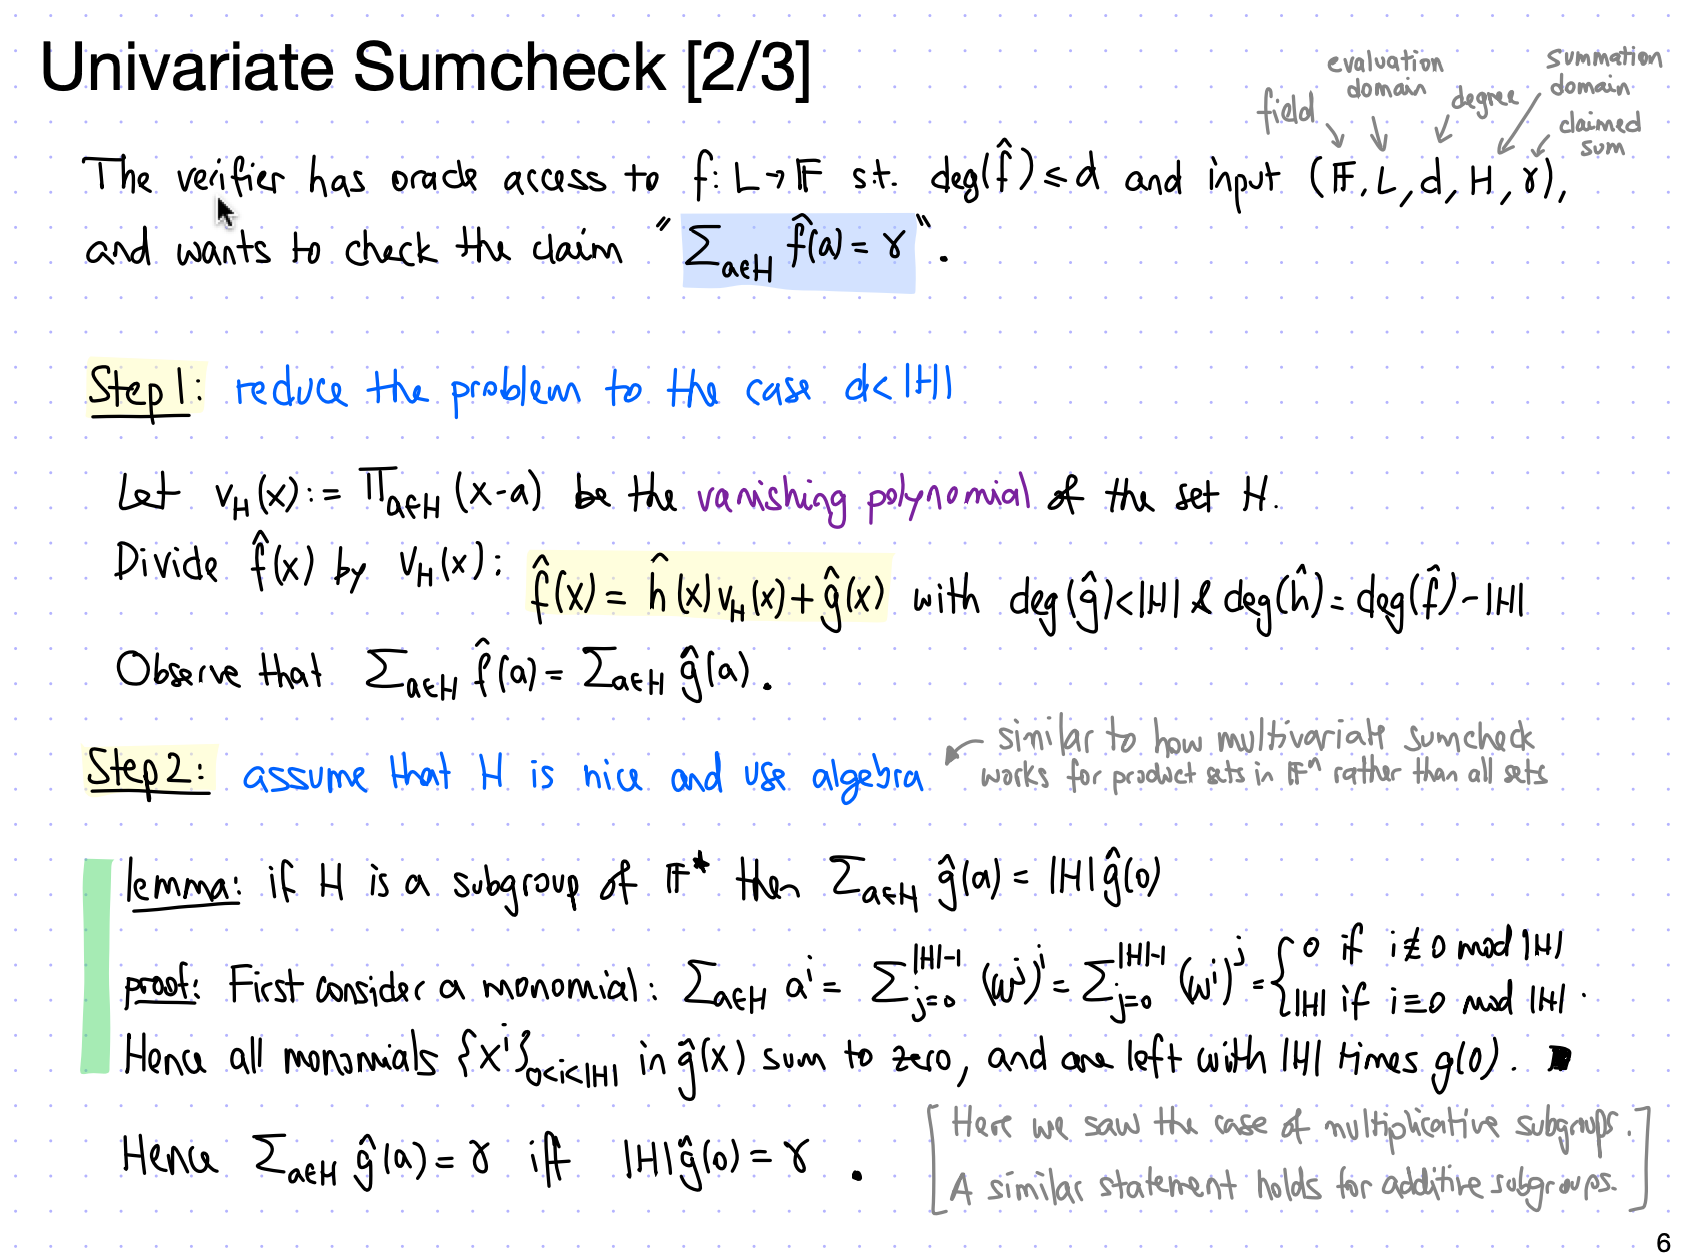 Univariate Sumcheck [2/3]
field
evaluation domain
degree
summation domain
claimed sum
The verifier has oracle access to f: L→𝔽 s.t. deg(f̂) ≤ d and input (𝔽, L, d, H, γ),
and wants to check the claim "∑_{a∈H} f̂(a) = γ".
Step 1: reduce the problem to the case d < |H|
Let v_H(x) := ∏_{a∈H} (x-a) be the vanishing polynomial of the set H.
Divide f̂(x) by v_H(x): f̂(x) = ĥ(x) v_H(x) + ĝ(x) with deg(ĝ) < |H| & deg(ĥ) = deg(f̂) - |H|
Observe that ∑_{a∈H} f̂(a) = ∑_{a∈H} ĝ(a).
Step 2: assume that H is nice and use algebra
similar to how multivariate sumcheck
works for product sets in 𝔽ⁿ rather than all sets
lemma: if H is a subgroup of 𝔽* then ∑_{a∈H} ĝ(a) = |H| ĝ(0)
proof: First consider a monomial: ∑_{a∈H} a^i = ∑_{j=0}^{|H|-1} (ω^j)^i = ∑_{j=0}^{|H|-1} (ω^i)^j = { 0 if i ≢ 0 mod |H|
|H| if i ≡ 0 mod |H| .
Hence all monomials {x^i}_{0<i<|H|} in ĝ(x) sum to zero, and are left with |H| times g(0). ■
Hence ∑_{a∈H} ĝ(a) = γ iff |H| ĝ(0) = γ .
[Here we saw the case of multiplicative subgroups.
A similar statement holds for additive subgroups.]
6